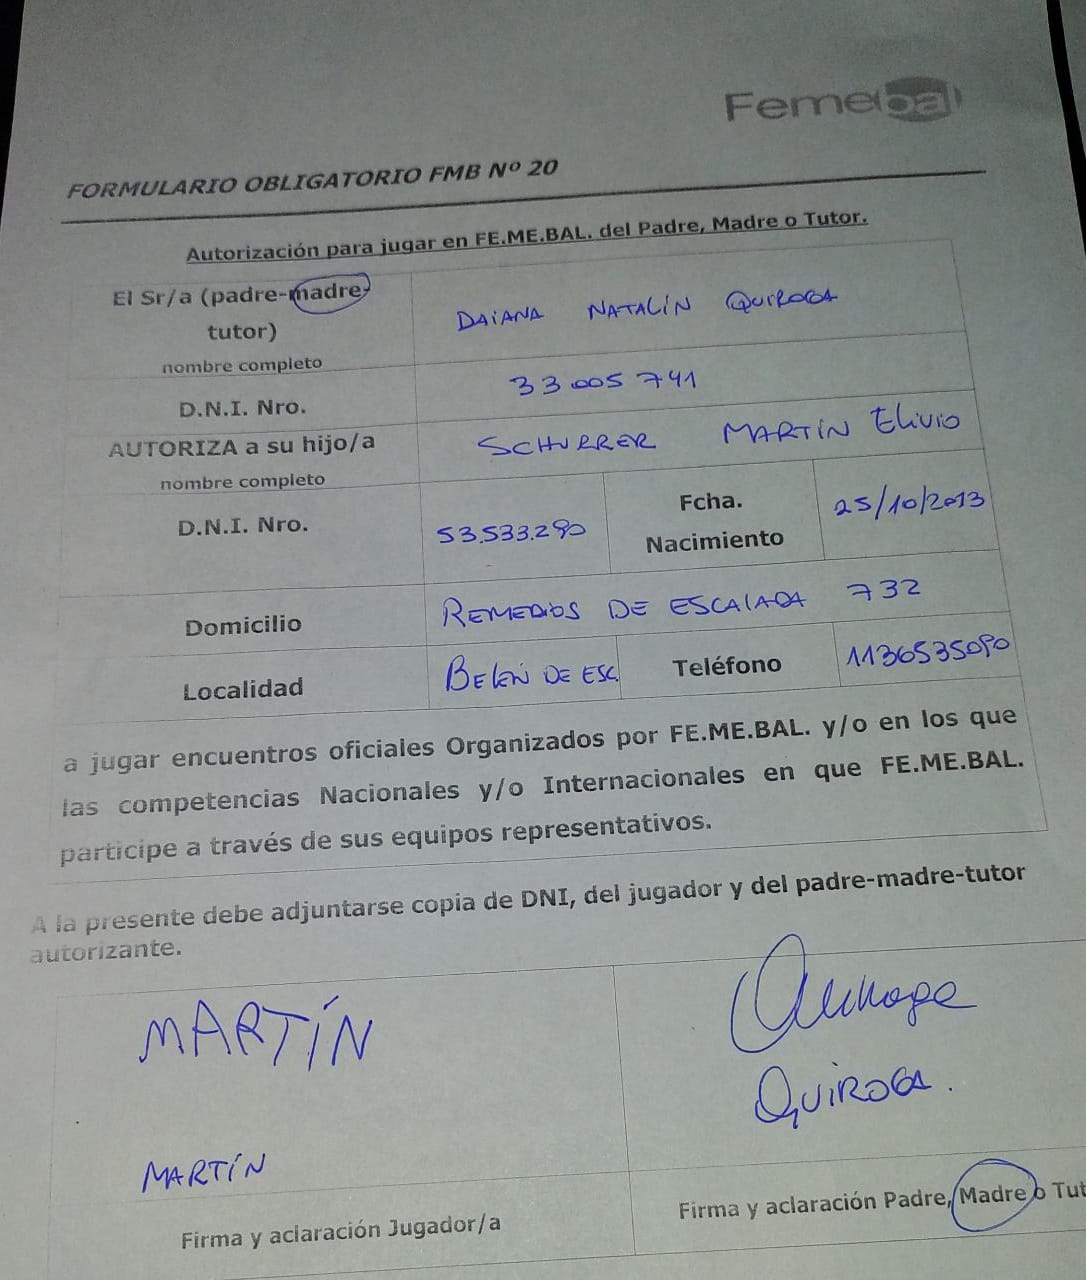 Femebal
FORMULARIO OBLIGATORIO FMB Nº 20
Autorización para jugar en FE.ME.BAL. del Padre, Madre o Tutor.
El Sr/a (padre-madre-
tutor)
nombre completo
DAIANA NATALIN QUIROGA
D.N.I. Nro.
33005741
AUTORIZA a su hijo/a
nombre completo
SCHURRER MARTÍN ELIVIO
D.N.I. Nro.
53.533.290
Fcha.
Nacimiento
25/10/2013
Domicilio
REMEDIOS DE ESCALADA 732
Localidad
BELÉN DE ESC.
Teléfono
1136535090
a jugar encuentros oficiales Organizados por FE.ME.BAL. y/o en los que
las competencias Nacionales y/o Internacionales en que FE.ME.BAL.
participe a través de sus equipos representativos.
A la presente debe adjuntarse copia de DNI, del jugador y del padre-madre-tutor
autorizante.
MARTÍN
MARTÍN
Firma y aclaración Jugador/a
Quiroga
QUIROGA.
Firma y aclaración Padre, Madre o Tut